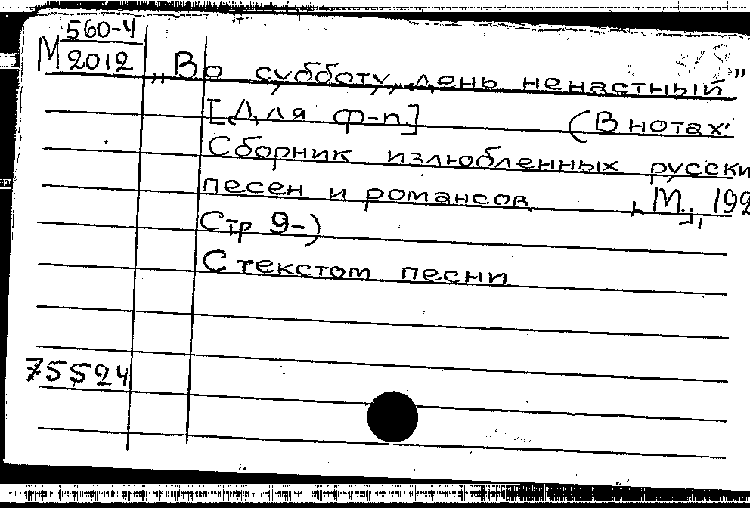 М 560-4
2012
„Во субботу, день ненастный"
[Для ф-п.] (В нотах:
Сборник излюбленных русски
песен и романсов [М.], 192
Стр 9-)
С текстом песни
75524